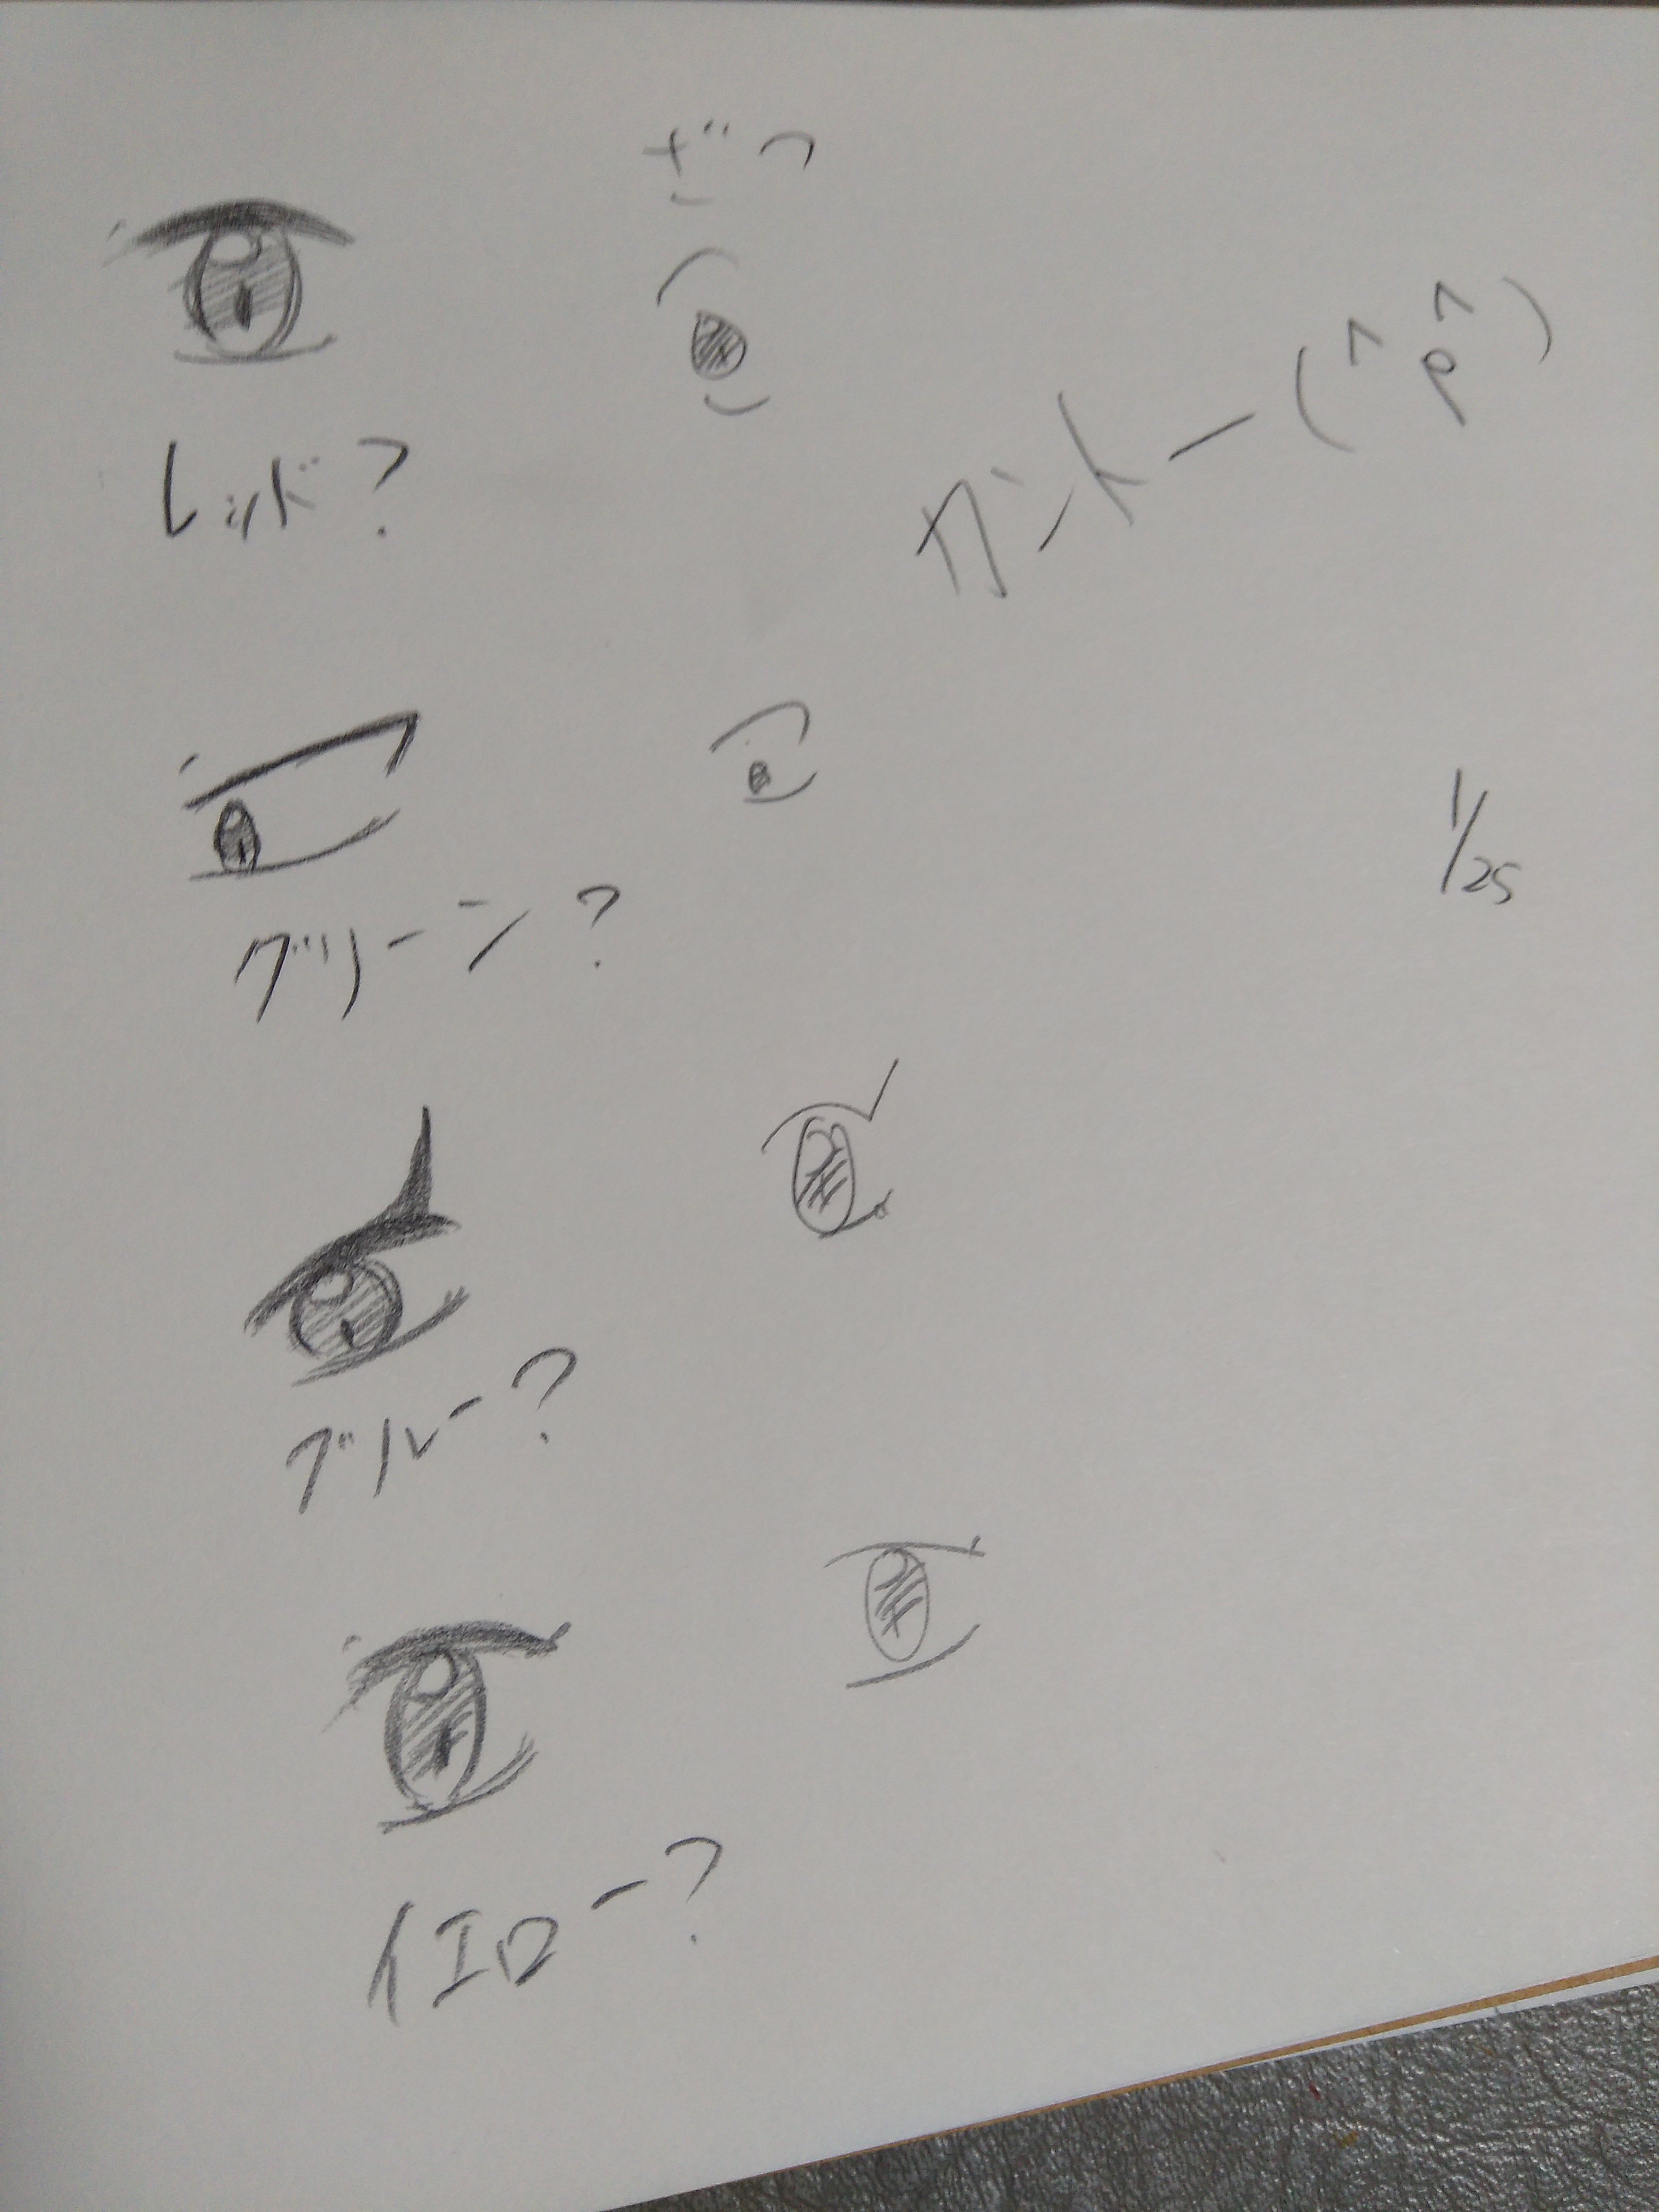 ざつ
レッド?
カントー(^p^)
1/25
グリーン?
ブルー?
イエロー?